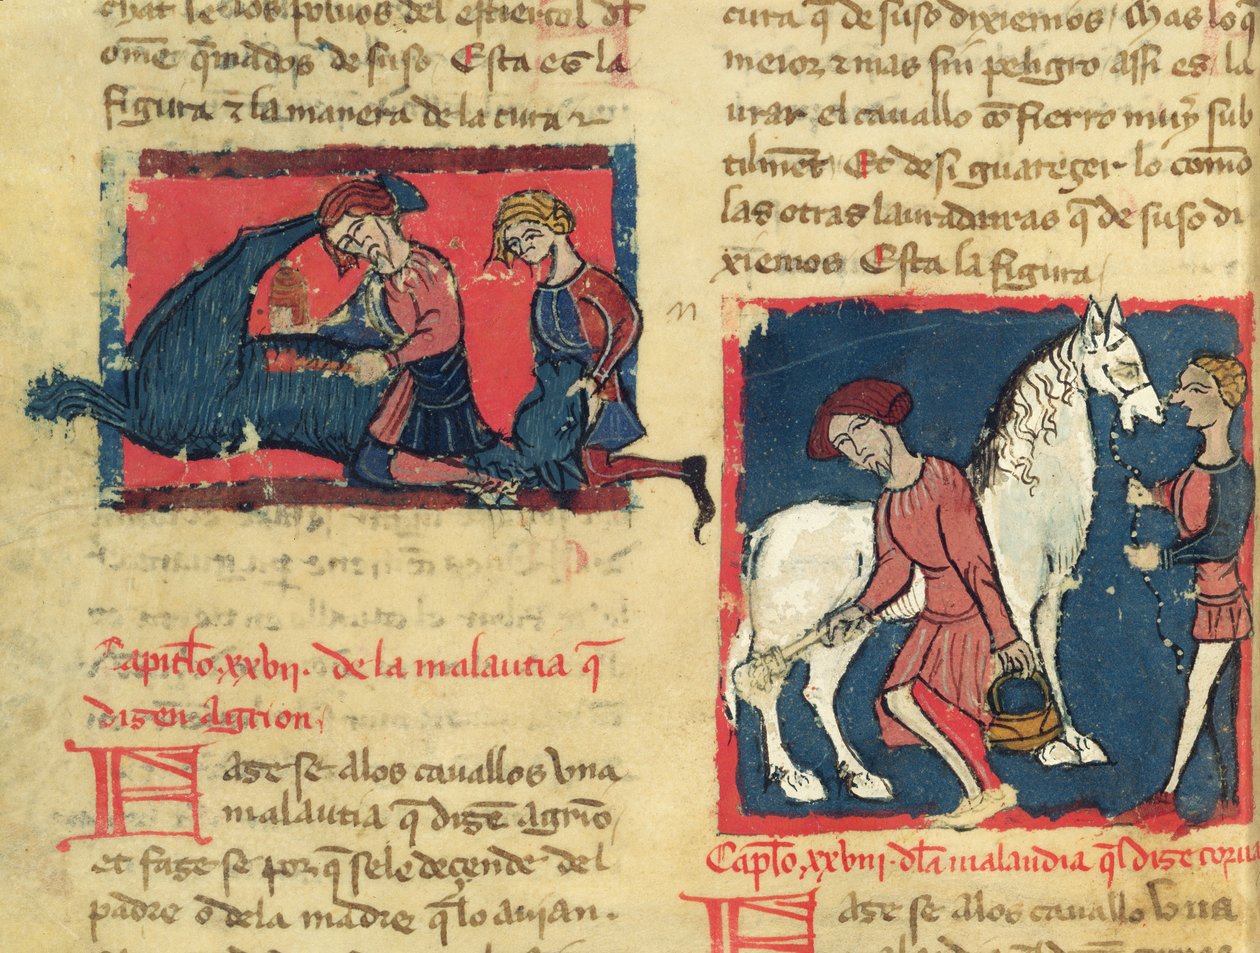 de los poluos del estiercol dl
ome q̃mados de suso Esta es la
figura ⁊ la manera de la cura
Capitl̃o.xxvij. de la malautia q̃
disen Agrion,
Fage se alos cauallos vna
malautia q̃ disẽ agriõ,
et fage se por q̃ se le deçende del
padre o dela madre q̃ lo auian.
cura q̃ de suso dixiemos, Mas lo q̃
meior ⁊ mas sin peligro assi es la
urar el cauallo cõ fierro muy sub
tilmẽt Et desi guareçer lo como
las otras lauraduras q̃ de suso di
xiemos Esta la figura
Capl̃o.xxviij. dl̃a malaudia q̃l dise corua
Fage se alos cauallo vna